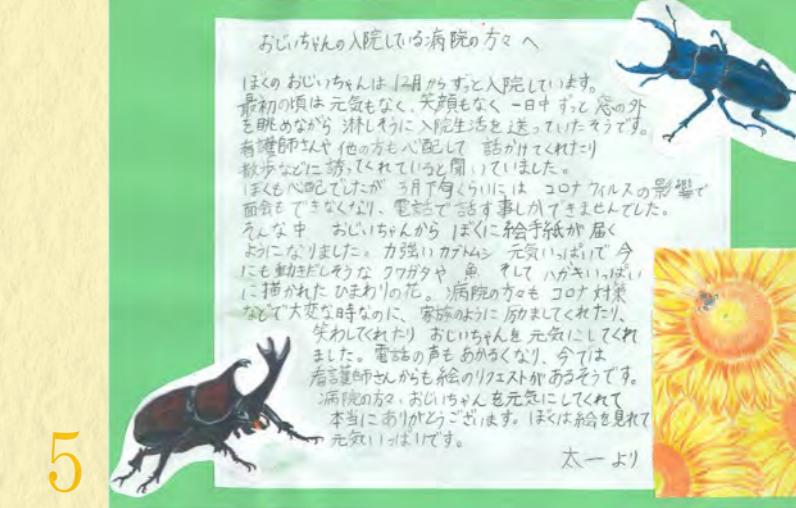 おじいちゃんの入院している病院の方々へ
ぼくのおじいちゃんは12月からずっと入院しています。
最初の頃は元気もなく、笑顔もなく一日中ずっと窓の外
を眺めながら淋しそうに入院生活を送っていたそうです。
看護師さんや他の方も心配して 話かけてくれたり
散歩などに誘ってくれていると聞いていました。
ぼくも心配でしたが 3月下旬くらいには コロナウィルスの影響で
面会もできなくなり、電話で話す事しかできませんでした。
そんな中 おじいちゃんから ぼくに絵手紙が届く
ようになりました。力強いカブトムシ 元気いっぱいで今
にも動きだしそうなクワガタや 魚 そして ハガキいっぱい
に描かれたひまわりの花。病院の方々も コロナ対策
などで大変な時なのに、家族のように励ましてくれたり、
笑わしてくれたり おじいちゃんを元気にしてくれ
ました。電話の声もあかるくなり、今では
看護師さんからも絵のリクエストがあるそうです。
病院の方々、おじいちゃんを元気にしてくれて
本当にありがとうございます。ぼくは絵を見れて
元気いっぱいです。
太一より
5